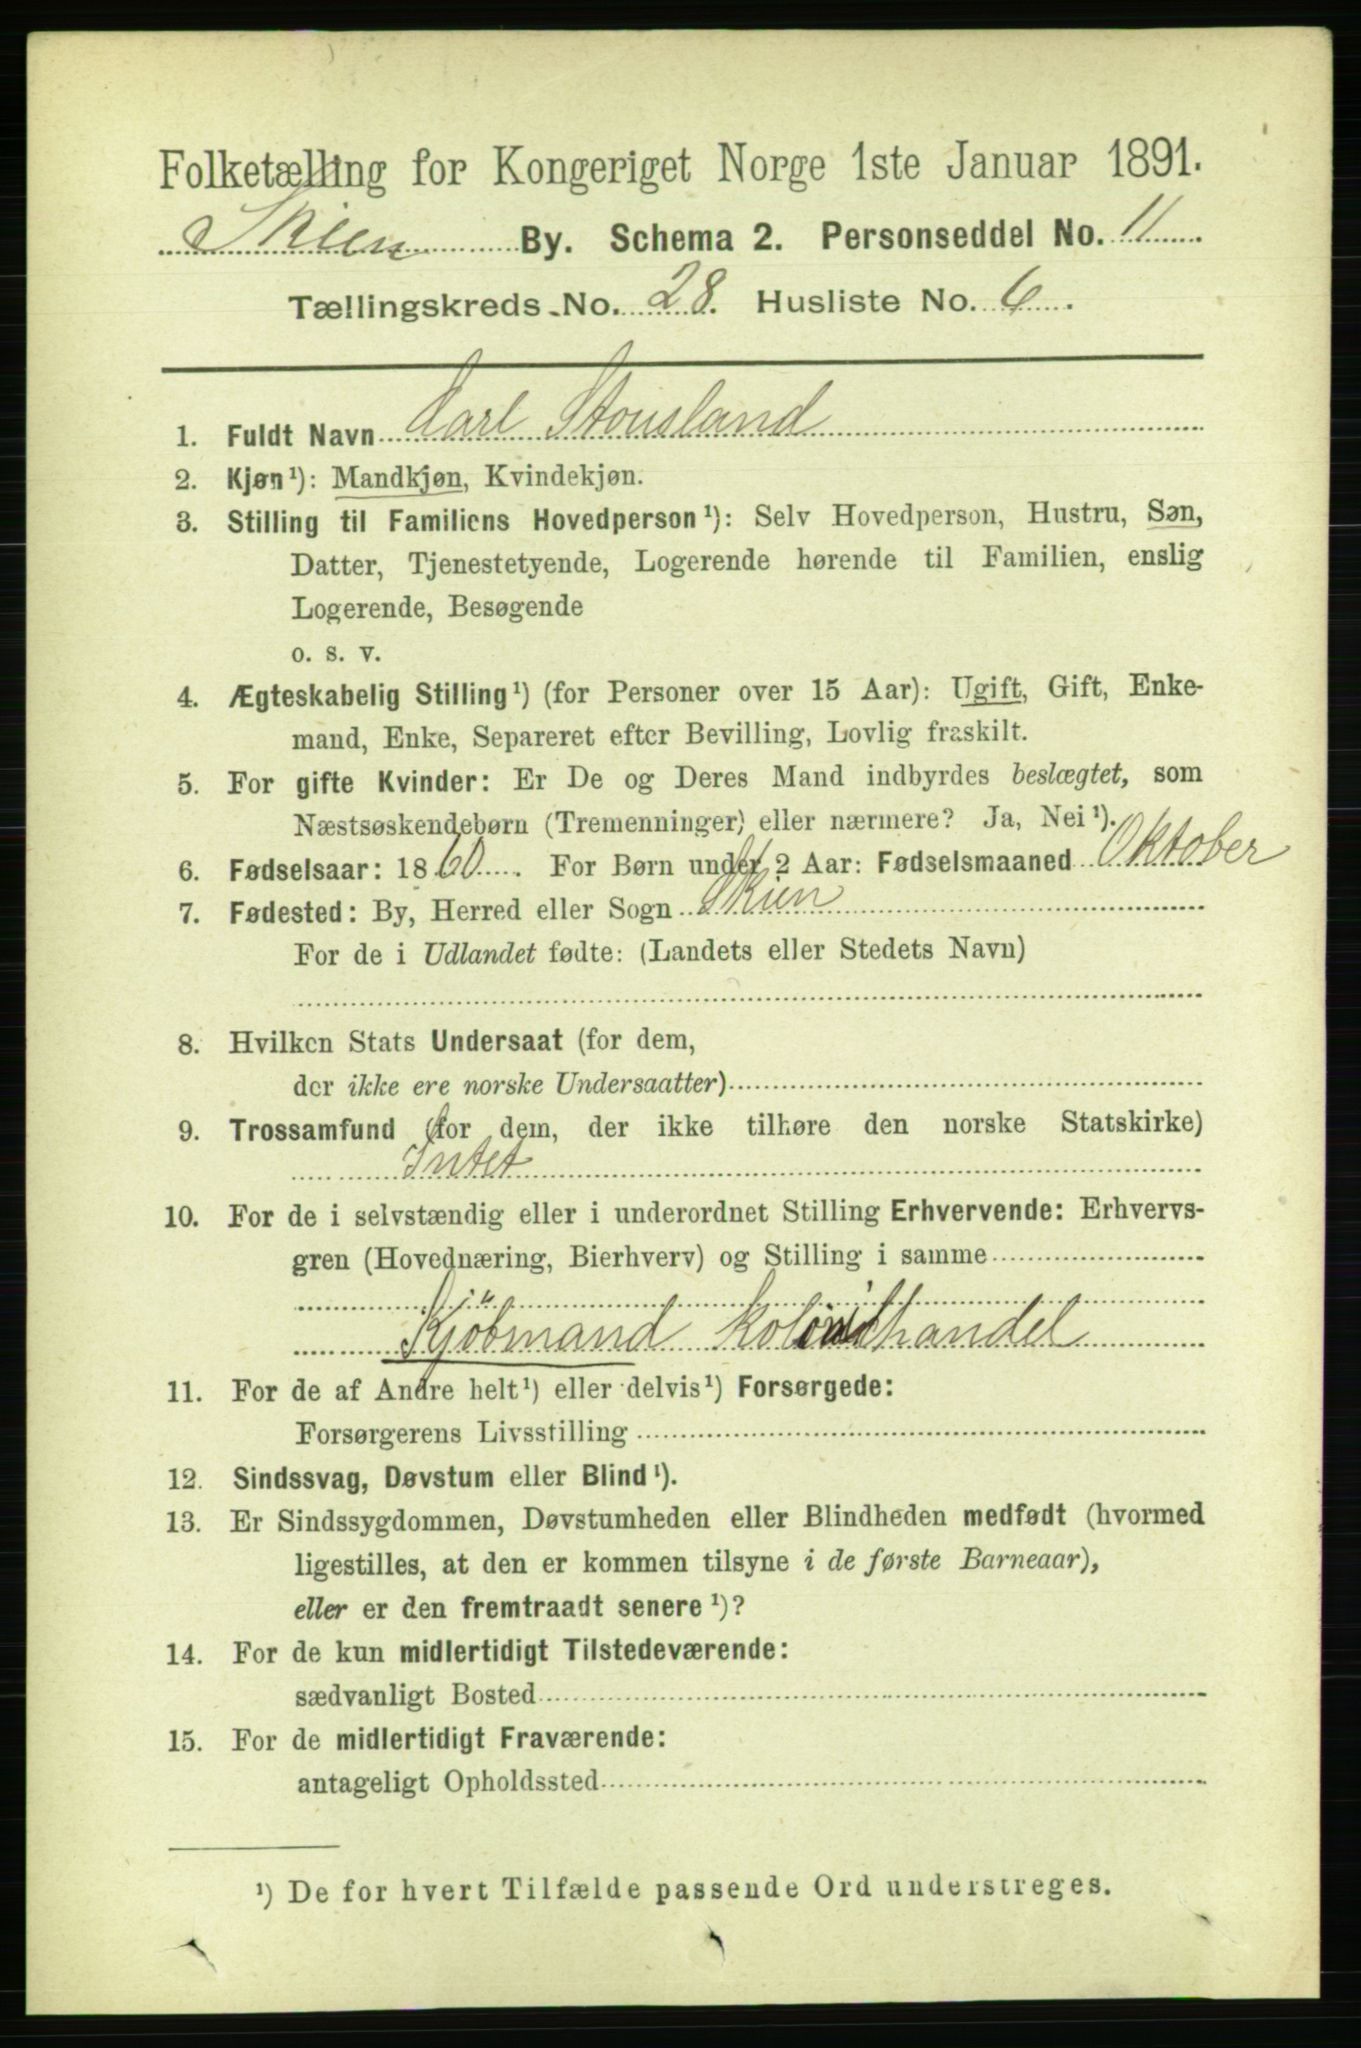 Folketælling for Kongeriget Norge 1ste Januar 1891.
Skien By. Schema 2. Personseddel No. 11
Tællingskreds No. 28. Husliste No. 6.
1. Fuldt Navn Carl Stousland
2. Kjøn¹): Mandkjøn, Kvindekjøn.
3. Stilling til Familiens Hovedperson¹): Selv Hovedperson, Hustru, Søn,
Datter, Tjenestetyende, Logerende hørende til Familien, enslig
Logerende, Besøgende
o. s. v.
4. Ægteskabelig Stilling¹) (for Personer over 15 Aar): Ugift, Gift, Enke-
mand, Enke, Separeret efter Bevilling, Lovlig fraskilt.
5. For gifte Kvinder: Er De og Deres Mand indbyrdes beslægtet, som
Næstsøskendebørn (Tremenninger) eller nærmere? Ja, Nei¹).
6. Fødselsaar: 1860. For Børn under 2 Aar: Fødselsmaaned Oktober
7. Fødested: By, Herred eller Sogn Skien
For de i Udlandet fødte: (Landets eller Stedets Navn)
8. Hvilken Stats Undersaat (for dem,
der ikke ere norske Undersaatter)
9. Trossamfund (for dem, der ikke tilhøre den norske Statskirke)
Intet
10. For de i selvstændig eller i underordnet Stilling Erhvervende: Erhvervs-
gren (Hovednæring, Bierhverv) og Stilling i samme
Kjöbmand kolonihandel
11. For de af Andre helt¹) eller delvis¹) Forsørgede:
Forsørgerens Livsstilling
12. Sindssvag, Døvstum eller Blind¹).
13. Er Sindssygdommen, Døvstumheden eller Blindheden medfødt (hvormed
ligestilles, at den er kommen tilsyne i de første Barneaar),
eller er den fremtraadt senere¹)?
14. For de kun midlertidigt Tilstedeværende:
sædvanligt Bosted
15. For de midlertidigt Fraværende:
antageligt Opholdssted
¹) De for hvert Tilfælde passende Ord understreges.